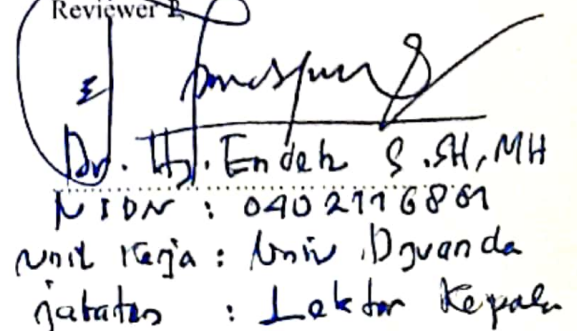 Reviewer 1,
Dr. Hj. Endeh S. SH, MH
NIDN : 0402116801
Unit Kerja : Univ Djuanda
Jabatan : Lektor Kepala